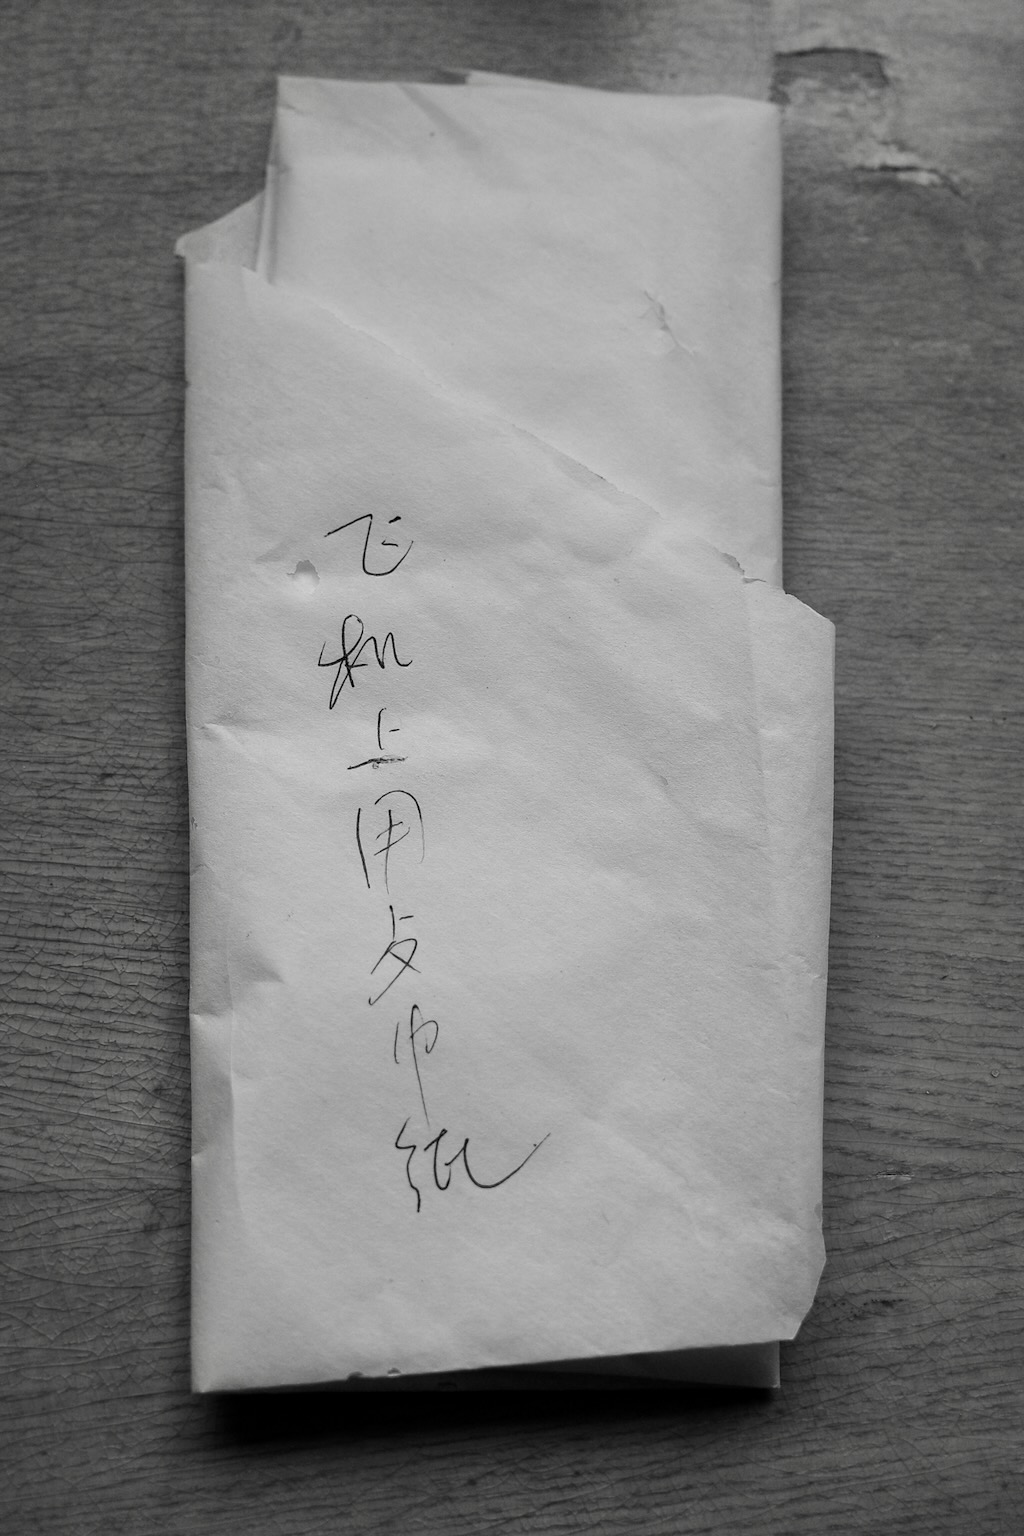 飞机上用点巾纸